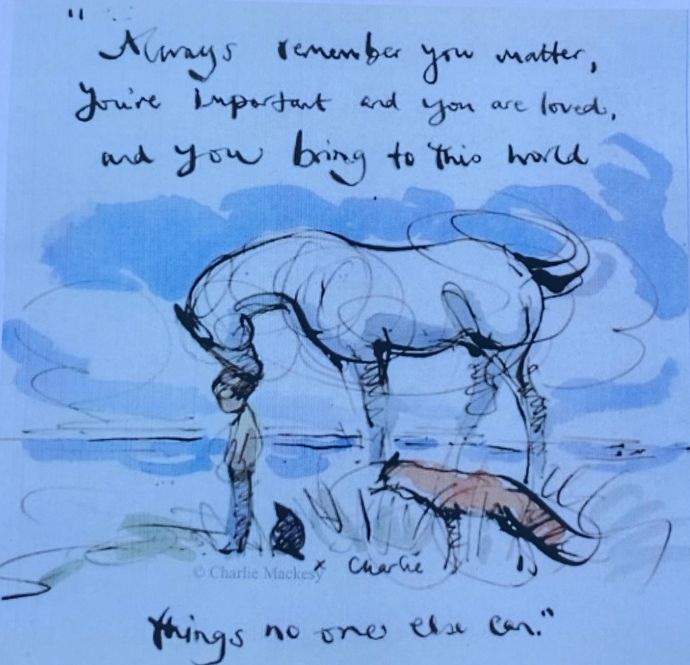 "Always remember you matter,
you're important and you are loved,
and you bring to this world
x Charlie
© Charlie Mackesy
things no one else can."